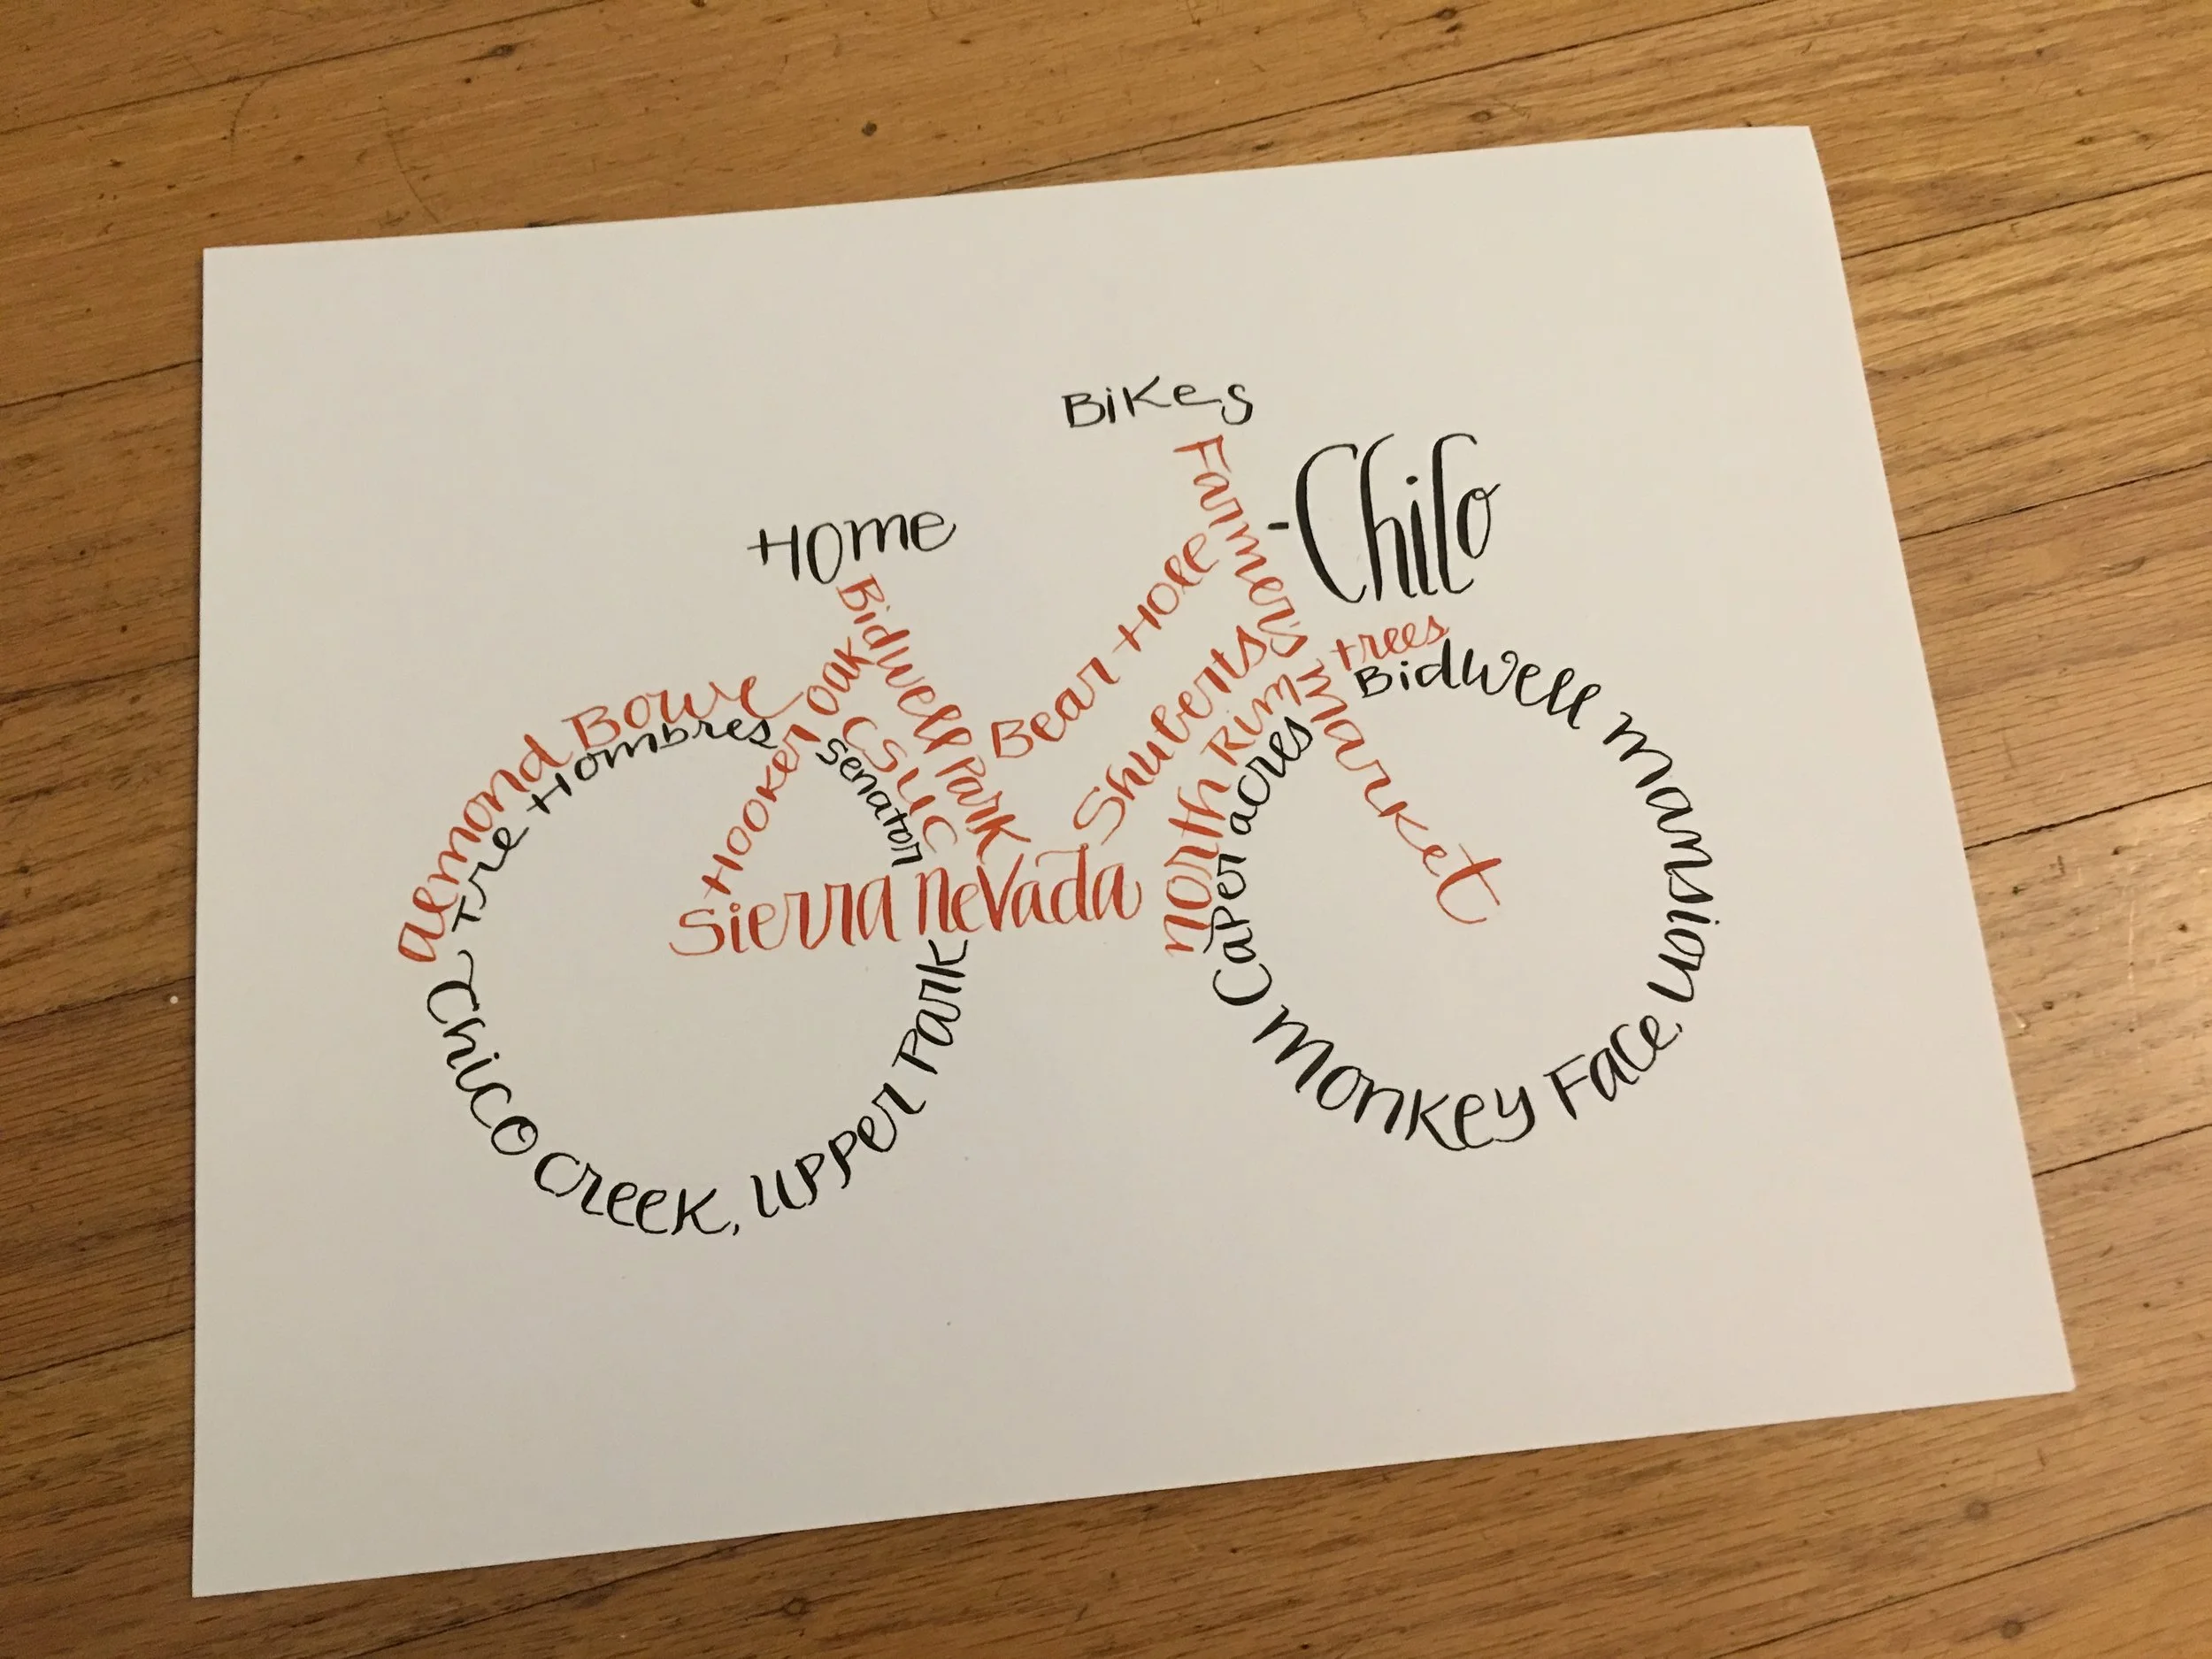 Bikes
Farmers Market
-Chico
Home
Bidwell Park
Bear Hole
Shuberts
trees
Bidwell Mansion
North Rim
Caper acres
Monkey Face
Hooker oak
CSUC
Senator
almond Bowl
Tre Hombres
Sierra Nevada
Chico Creek, Upper Park